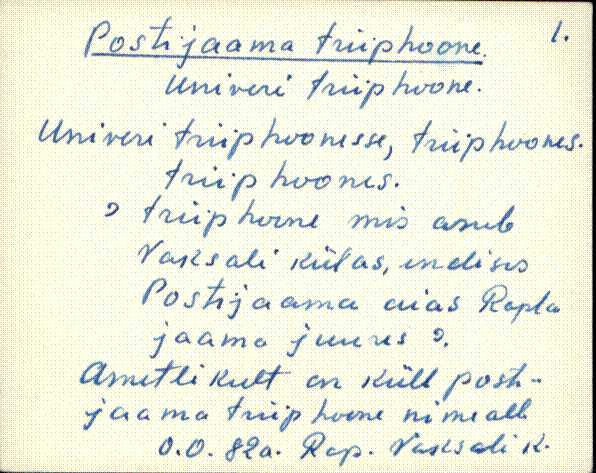 1.
Postijaama triiphoone.
Univeri triiphoone.
Univeri triiphoonesse, triiphoones.
triiphoones.
triiphoone mis asub
Vaksali külas, endises
Postijaama aias Rapla
jaama juures.
Ametlikult on küll posti-
jaama triiphoone nime all.
O.O. 82a. Rap. Vaksali k.